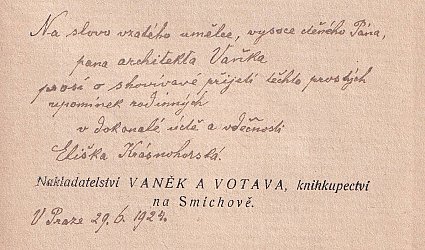 Na slovo vzatého umělce, vysoce ctěného Pána,
pana architekta Vaňka
prosí o shovívavé přijetí těchto prostých
upomínek rodinných
v dokonalé úctě a vděčnosti
Eliška Krásnohorská.
Nakladatelství VANĚK A VOTAVA, knihkupectví
na Smíchově.
V Praze 29. 6. 1924.